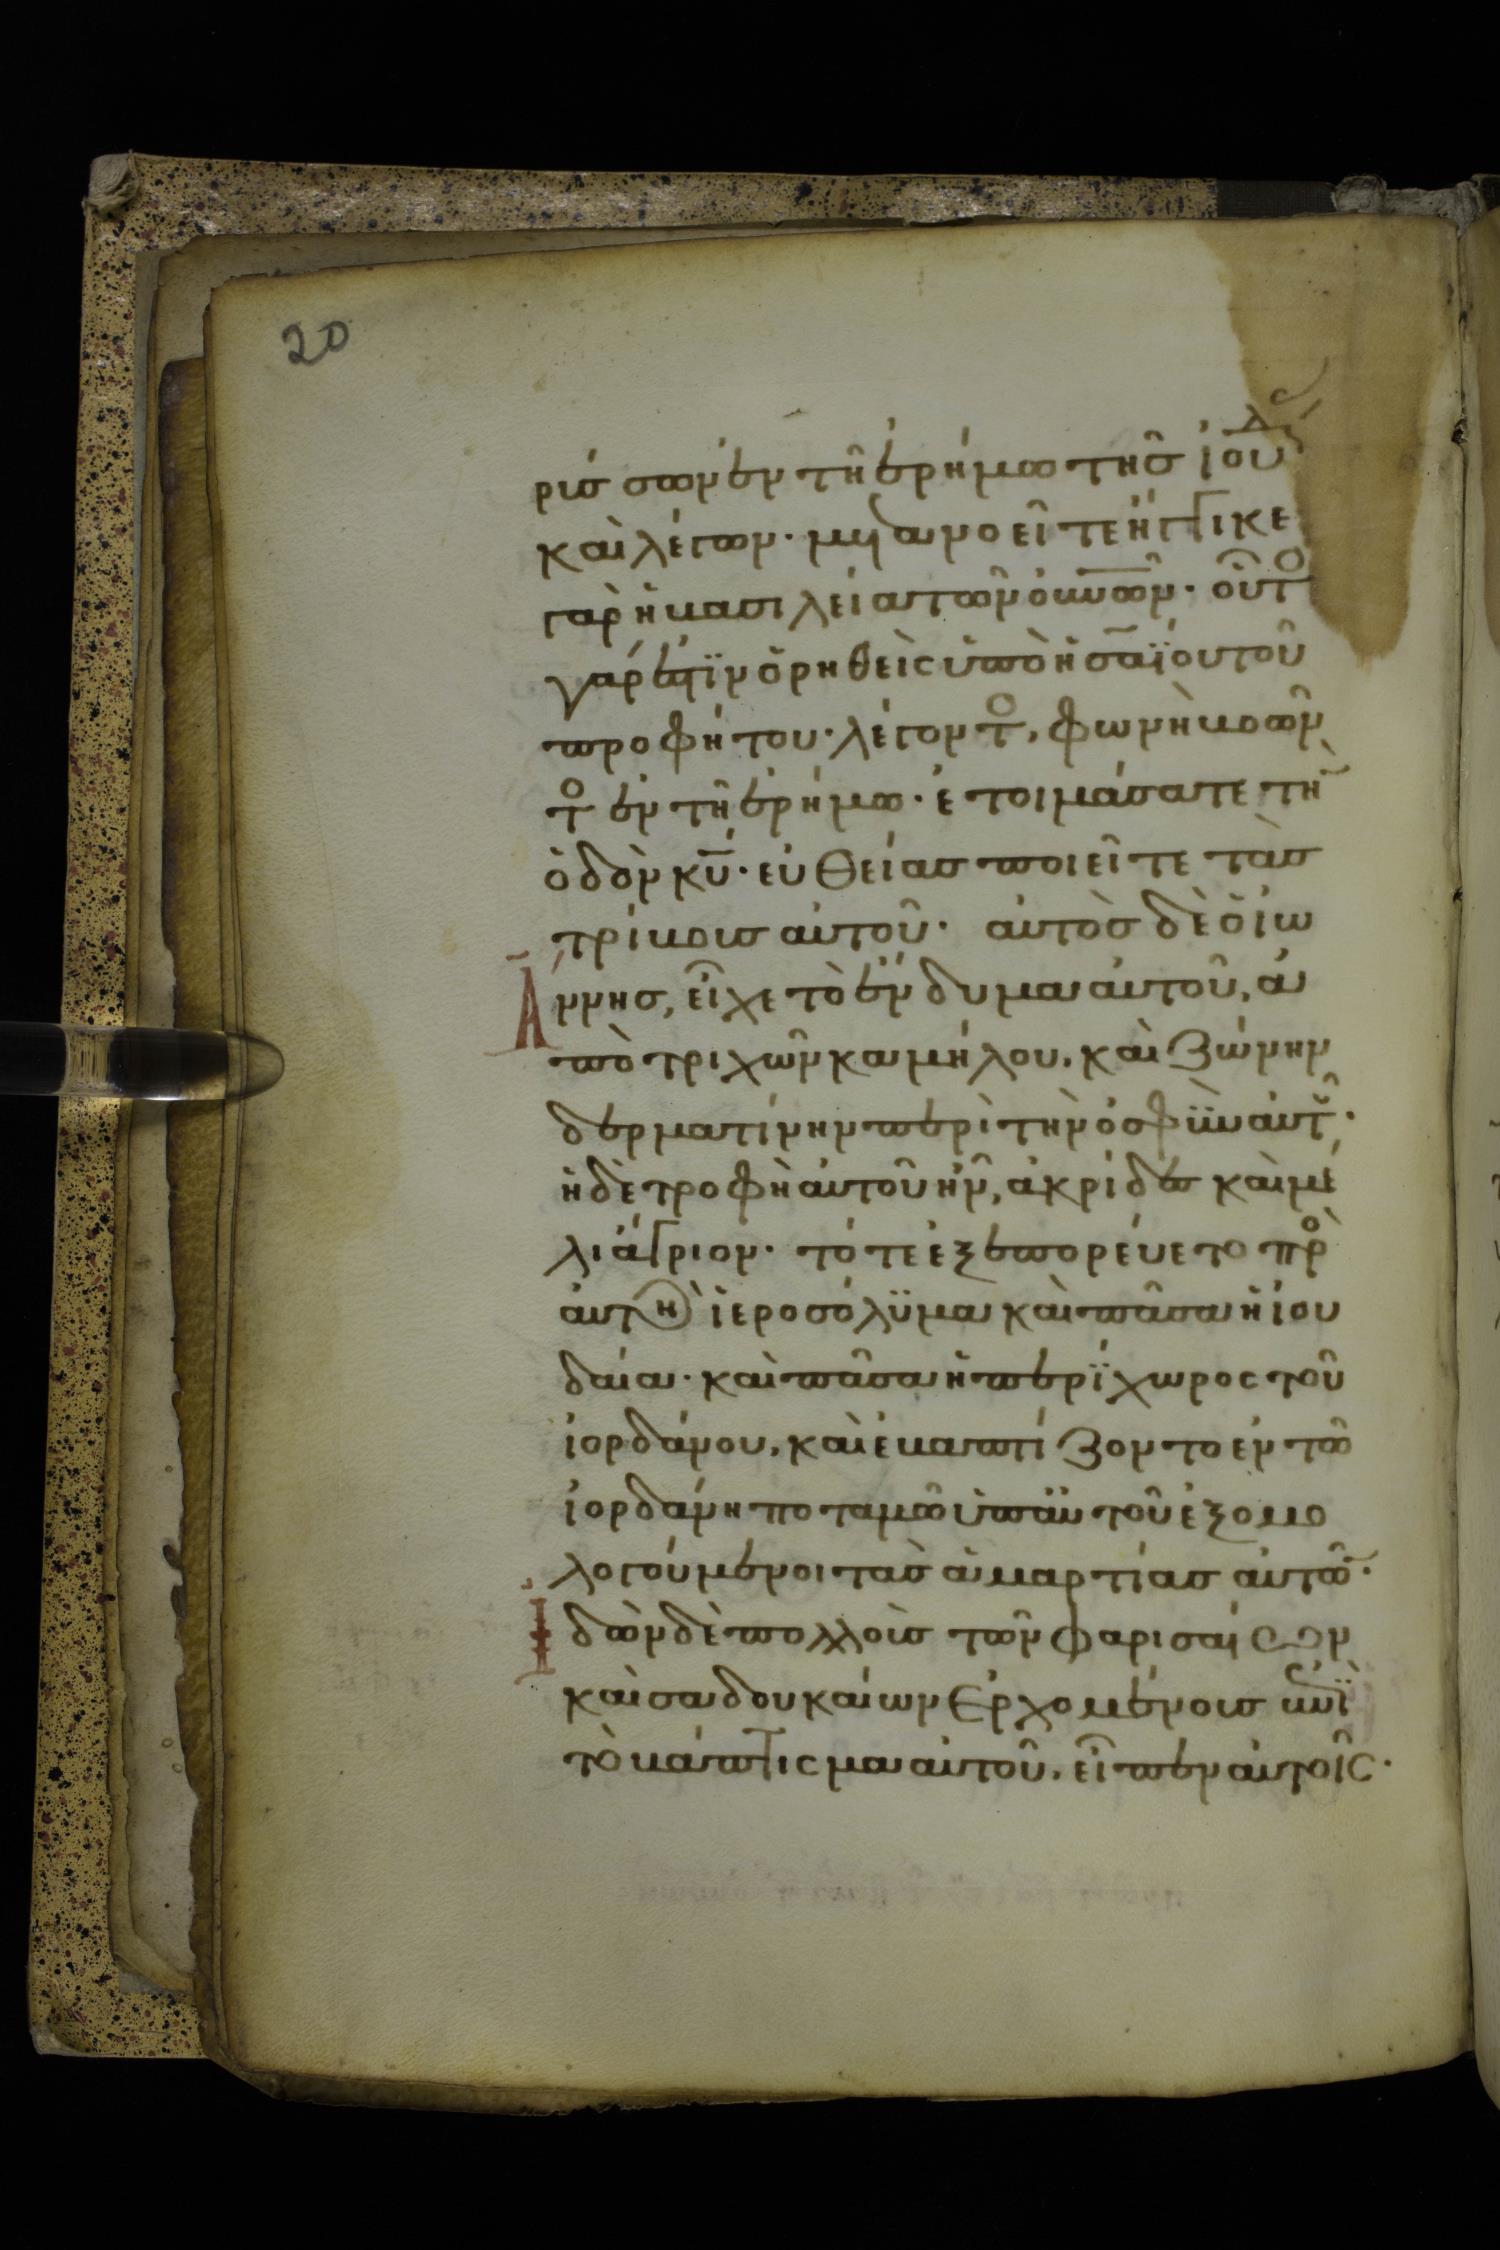 20
ρύσσων ἐν τῆ ἐρήμω τῆς ἰουδ
καὶ λέγων· μετανοεῖτε ἤγγικε
γὰρ ἡ βασιλεία τῶν οὐ̅νῶν· οὗτο
γάρ ἐστϊν ὁ ρηθεὶς ὑπὸ ἡσαΐου τοῦ
προφήτου· λέγοντο, φωνὴ βοῶν
το ἐν τῆ ἐρήμω· ἑτοιμάσατε τὴ
ὁδὸν κ̅υ· εὐθείας ποιεῖτε τὰς
τρίβους αὐτοῦ· αὐτὸς δὲ ὁ ἰω
άννης, εἶχε τὸ ἔνδυμα αὐτοῦ, ἀ
πὸ τριχῶν καμήλου, καὶ ζώνην
δερματίνην περὶ τὴν ὀσφῢν αὐτοῦ·
ἡ δὲ τροφὴ αὐτοῦ ἦν, ἀκρίδες καὶ μέ
λι ἄγριον· τότε ἐξεπορεύετο πρὸ
αὐτὸν ἡ ἱεροσόλϋμα καὶ πᾶσα ἡ ἰου
δαία· καὶ πᾶσα ἡ περίχωρος τοῦ
ἰορδάνου, καὶ ἐβαπτίζοντο ἐν τῶ
ἰορδάνη ποταμῶ ὑπ αὐτοῦ ἐξομο
λογούμενοι τὰς ἁμαρτίας αὐτῶ·
Ἰδὼν δὲ πολλοὺς τῶν φαρισαίων
καὶ σαδουκαίων ἐρχομένους ἐπῒ
τὸ βάπτισμα αὐτοῦ, εἶπεν αὐτοῖς·